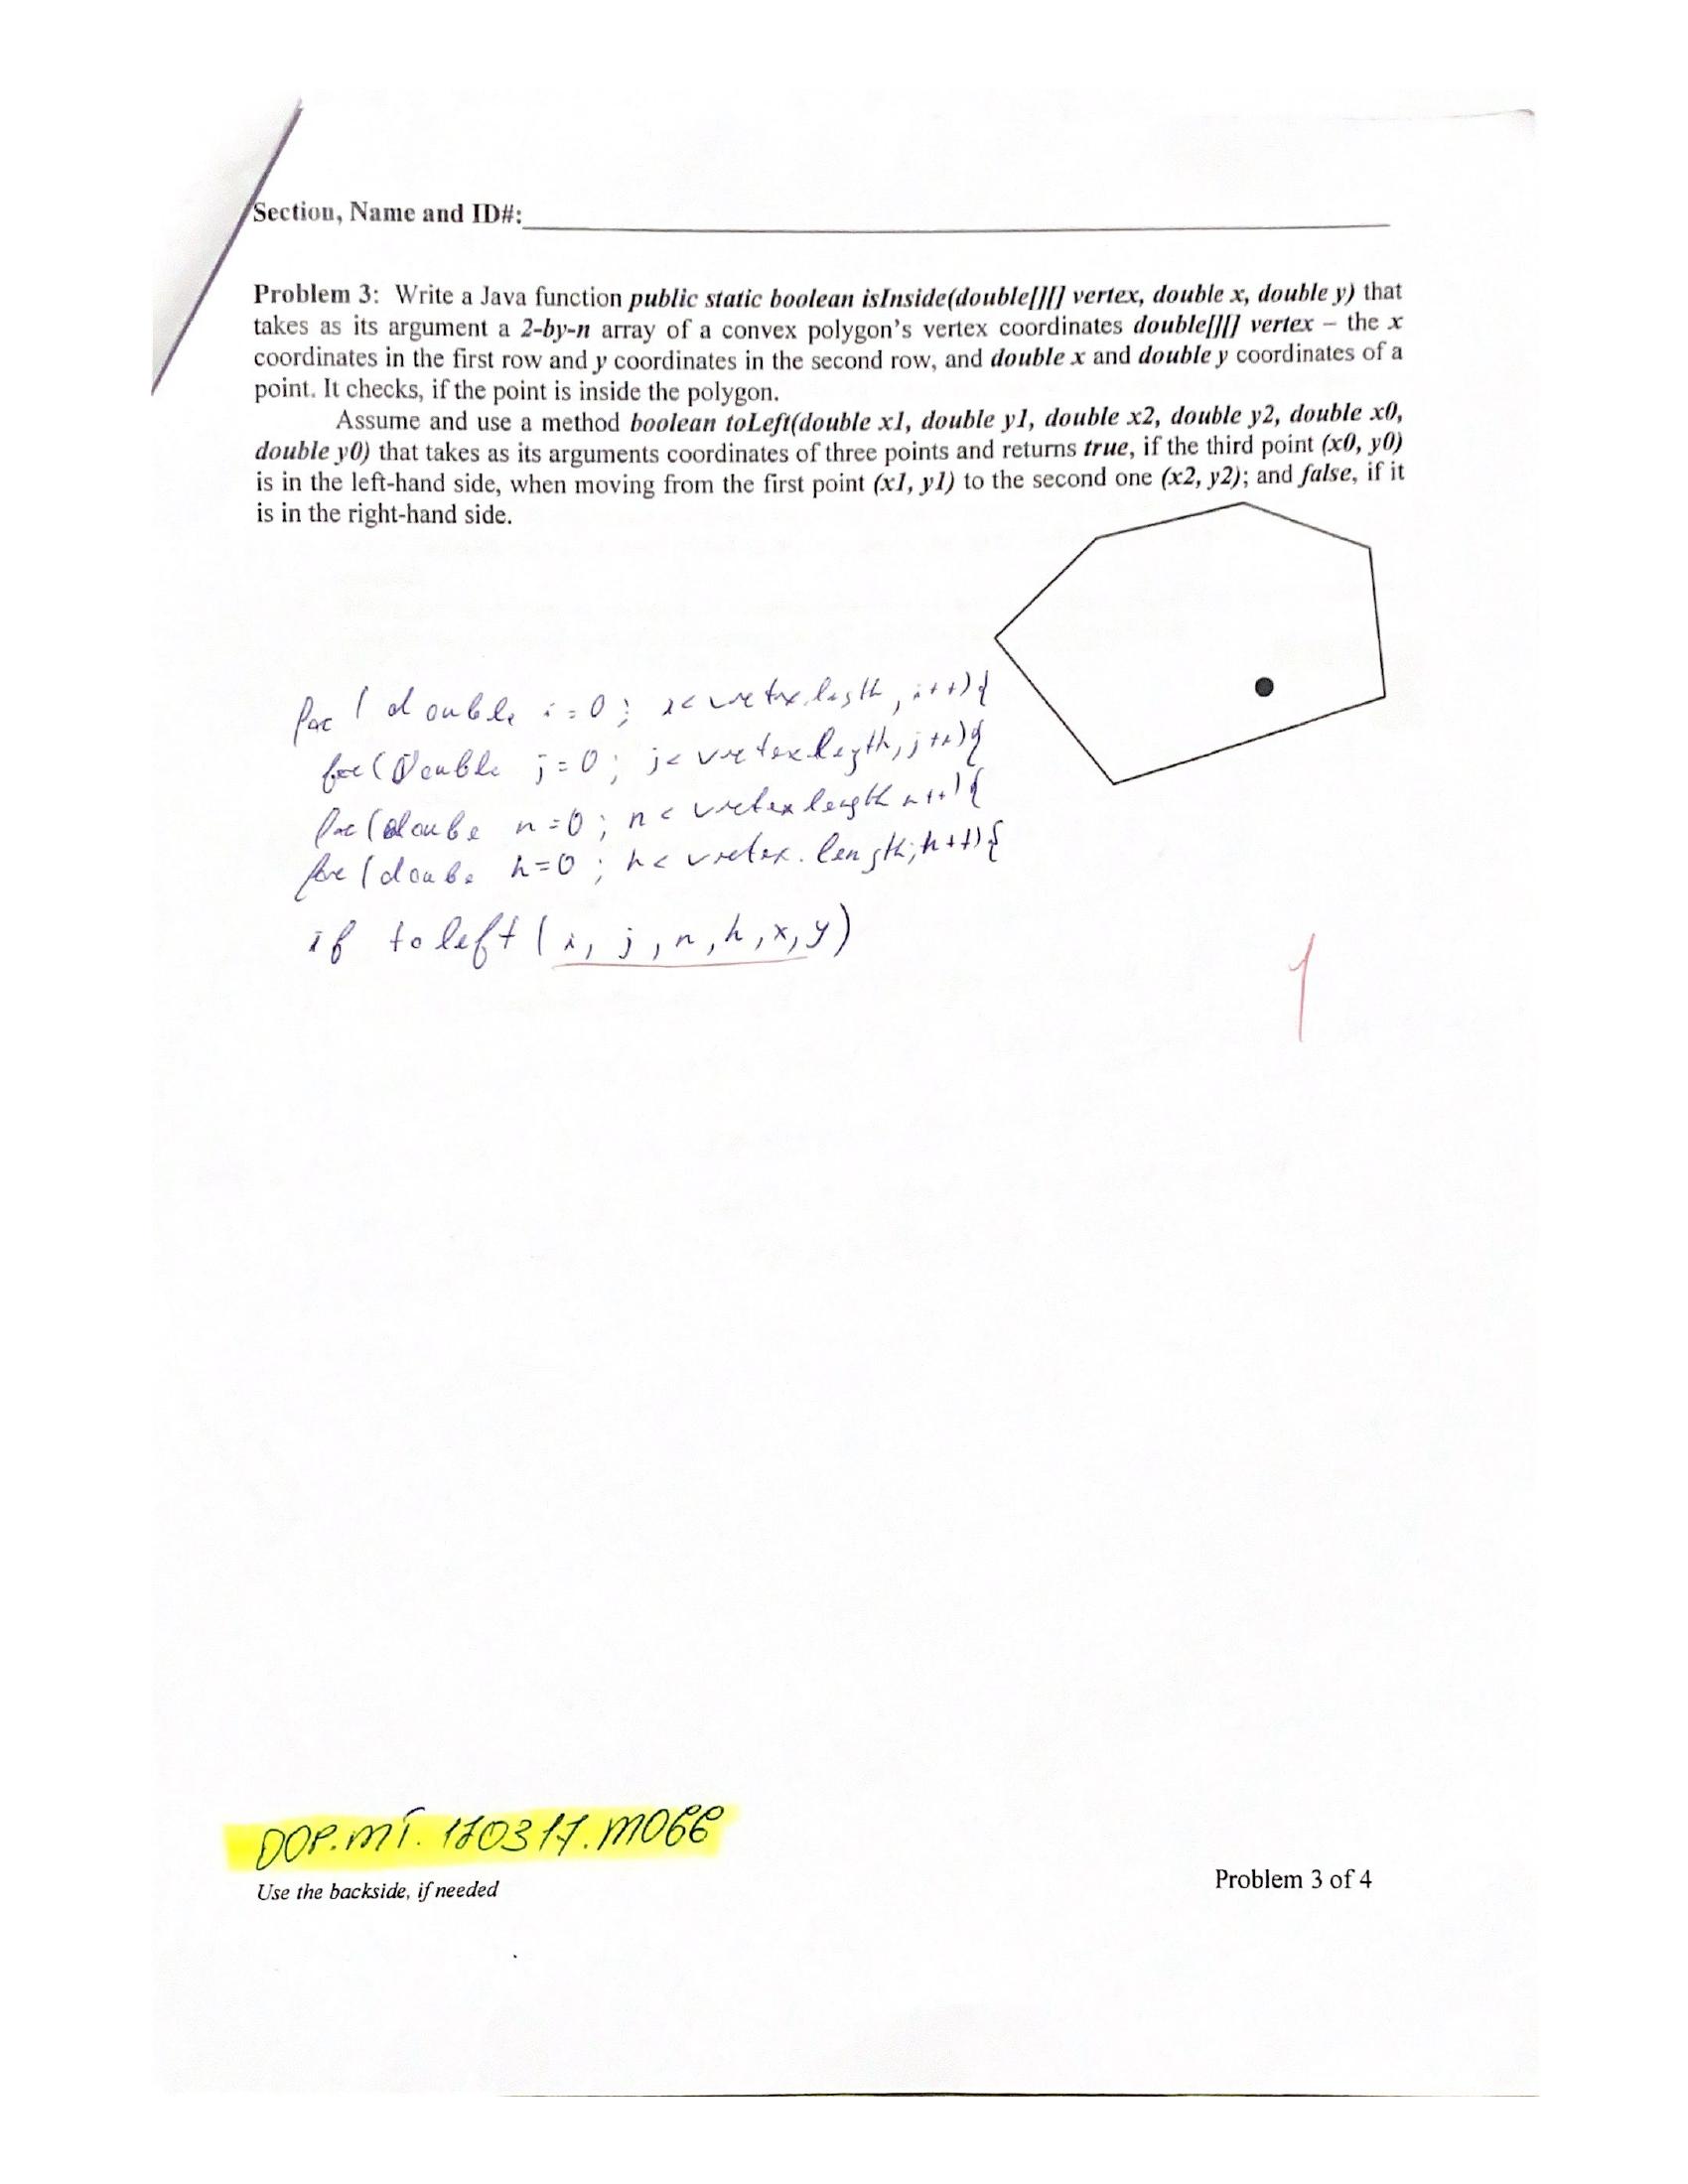 Section, Name and ID#:
Problem 3: Write a Java function public static boolean isInside(double[][] vertex, double x, double y) that
takes as its argument a 2-by-n array of a convex polygon's vertex coordinates double[][] vertex – the x
coordinates in the first row and y coordinates in the second row, and double x and double y coordinates of a
point. It checks, if the point is inside the polygon.
Assume and use a method boolean toLeft(double x1, double y1, double x2, double y2, double x0,
double y0) that takes as its arguments coordinates of three points and returns true, if the third point (x0, y0)
is in the left-hand side, when moving from the first point (x1, y1) to the second one (x2, y2); and false, if it
is in the right-hand side.
for ( double i = 0 ; i <
for ( Double j = 0 ; j <
n = 0 ; n < length n++ ) {
h = 0 ; h < . length; h++) {
if to left ( i, j, n, h, x, y )
1
Use the backside, if needed
Problem 3 of 4